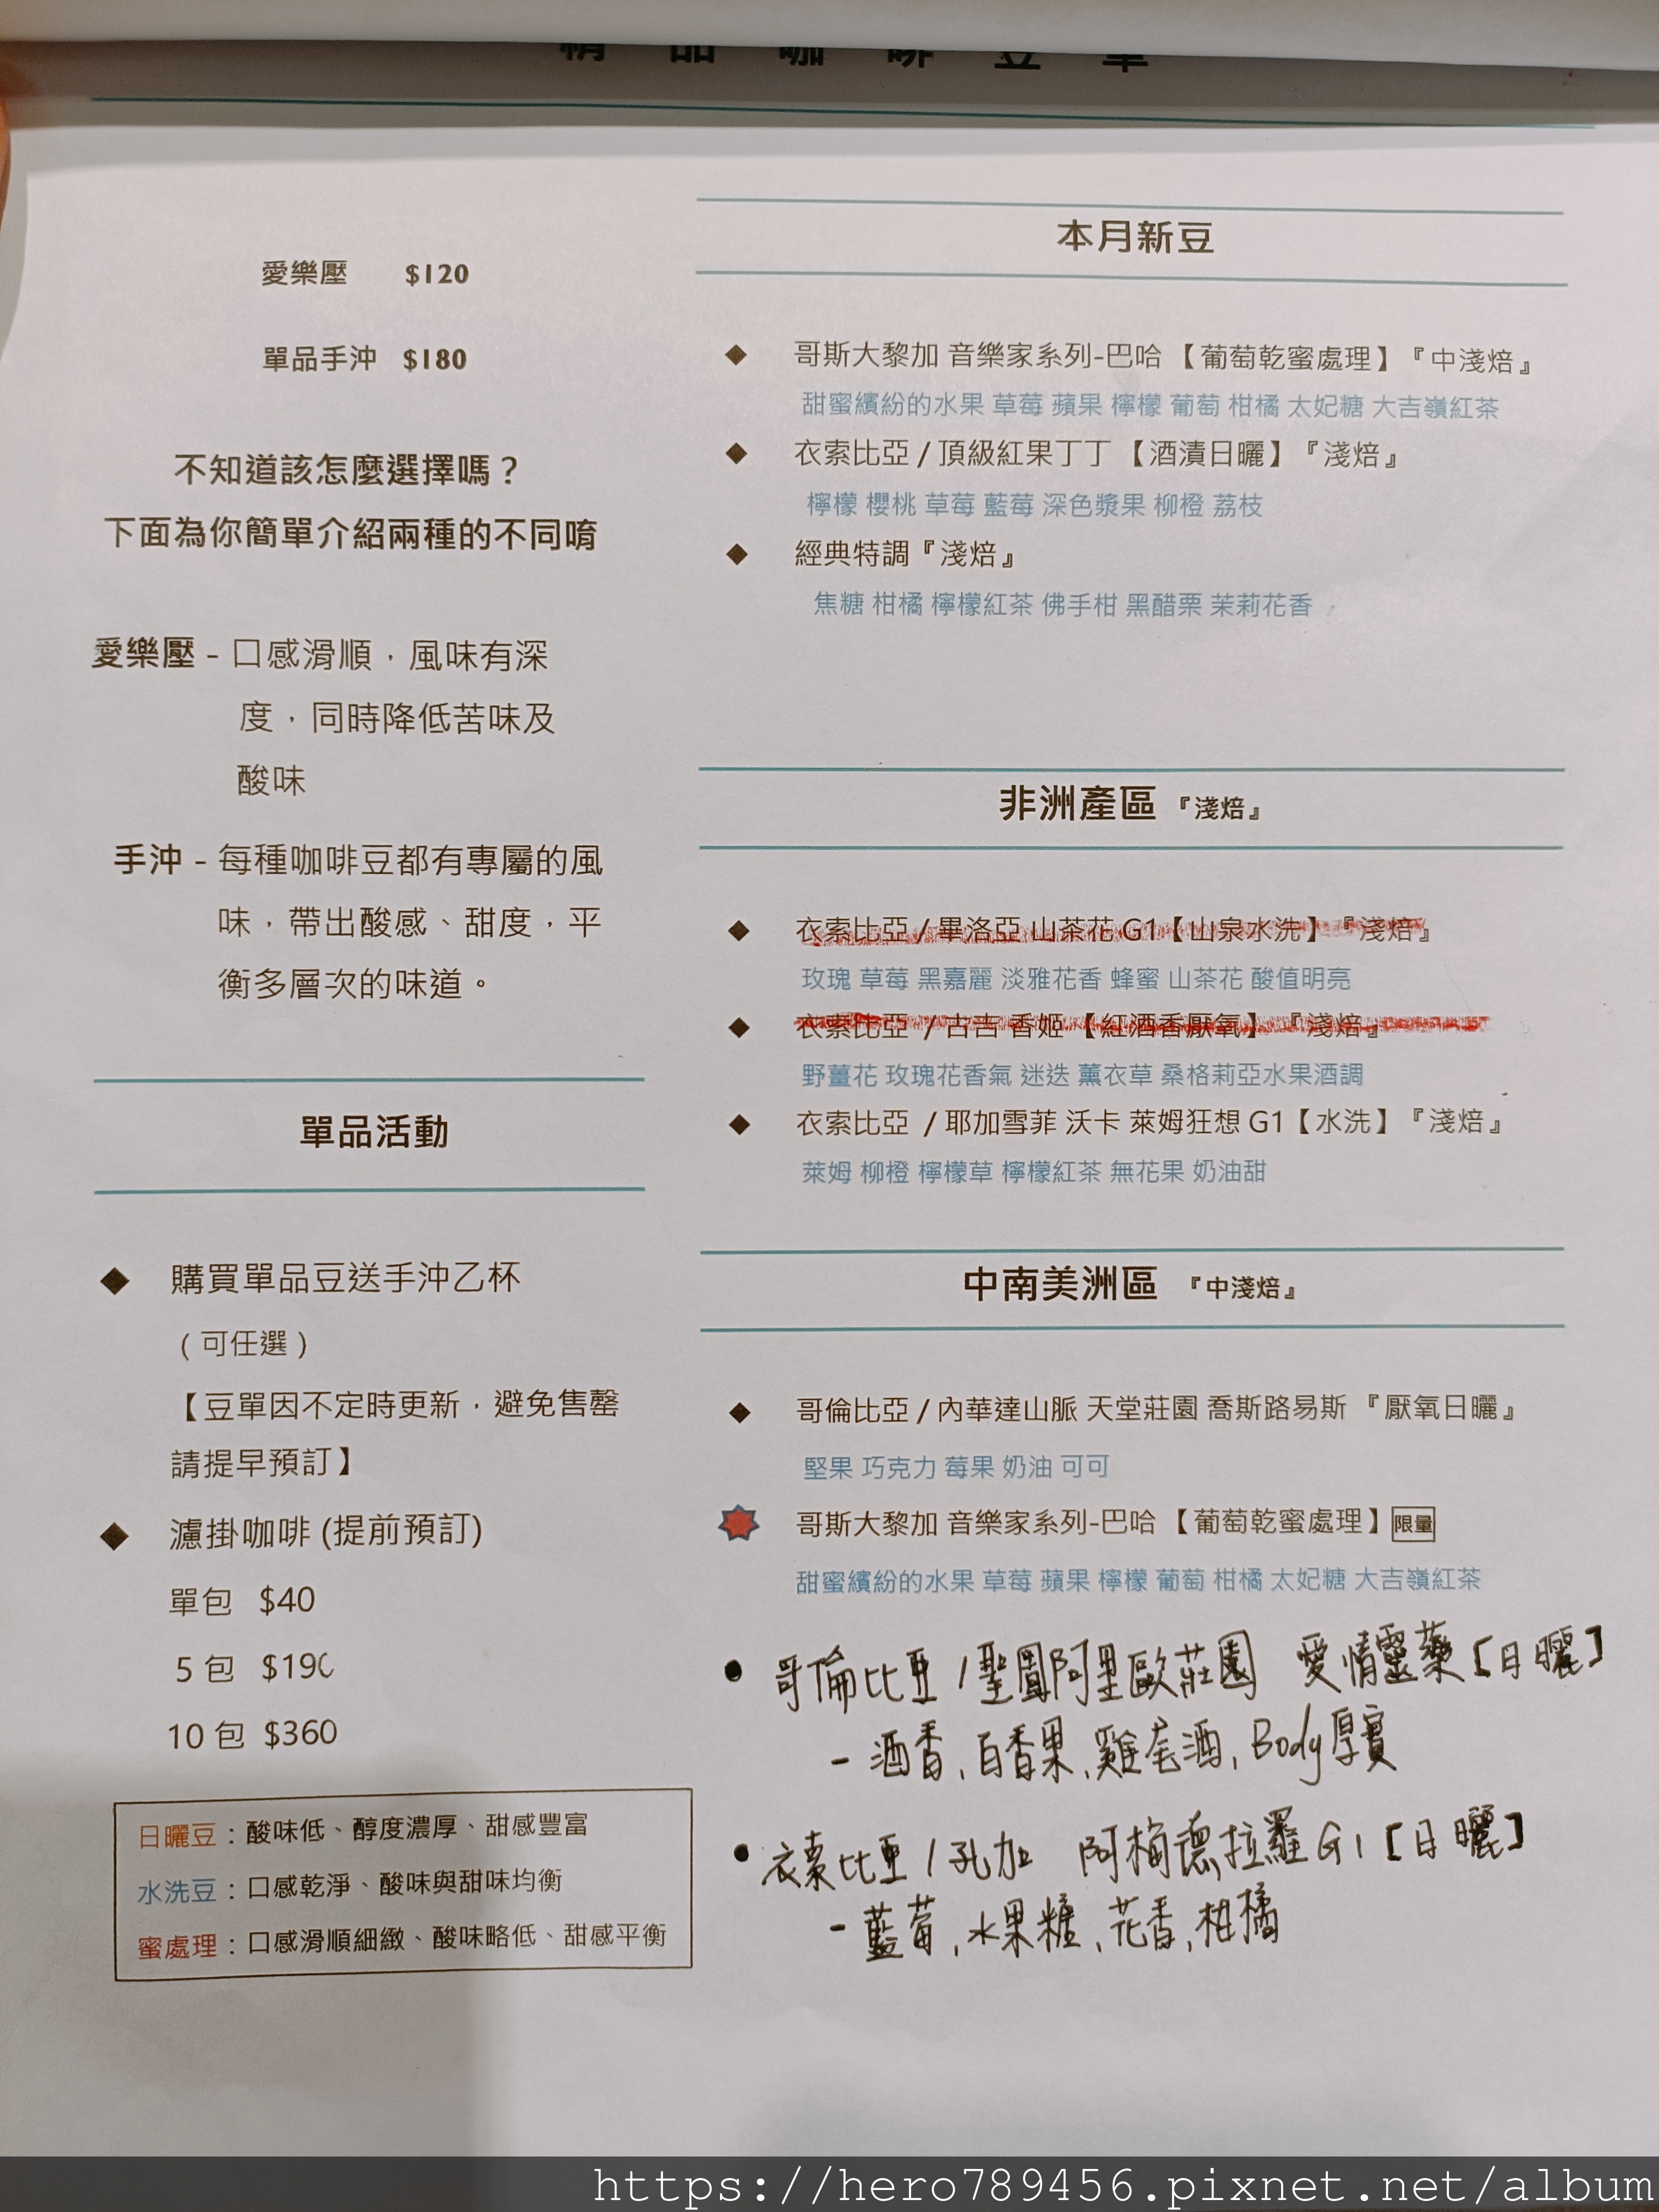 精品咖啡豆單
愛樂壓 $120
單品手沖 $180
不知道該怎麼選擇嗎？
下面為你簡單介紹兩種的不同唷
愛樂壓 - 口感滑順，風味有深
度，同時降低苦味及
酸味
手沖 - 每種咖啡豆都有專屬的風
味，帶出酸感、甜度，平
衡多層次的味道。
單品活動
◆ 購買單品豆送手沖乙杯
（可任選）
【豆單因不定時更新，避免售罄
請提早預訂】
◆ 濾掛咖啡 (提前預訂)
單包 $40
5 包 $190
10 包 $360
日曬豆：酸味低、醇度濃厚、甜感豐富
水洗豆：口感乾淨、酸味與甜味均衡
蜜處理：口感滑順細緻、酸味略低、甜感平衡
本月新豆
◆ 哥斯大黎加 音樂家系列-巴哈 【葡萄乾蜜處理】『中淺焙』
甜蜜繽紛的水果 草莓 蘋果 檸檬 葡萄 柑橘 太妃糖 大吉嶺紅茶
◆ 衣索比亞 / 頂級紅果丁丁 【酒漬日曬】『淺焙』
檸檬 櫻桃 草莓 藍莓 深色漿果 柳橙 荔枝
◆ 經典特調『淺焙』
焦糖 柑橘 檸檬紅茶 佛手柑 黑醋栗 茉莉花香
非洲產區 『淺焙』
◆ 衣索比亞 / 畢洛亞 山茶花 G1【山泉水洗】『淺焙』
玫瑰 草莓 黑嘉麗 淡雅花香 蜂蜜 山茶花 酸值明亮
◆ 衣索比亞 / 古吉 香姬 【紅酒香厭氧】『淺焙』
野薑花 玫瑰花香氣 迷迭 薰衣草 桑格莉亞水果酒調
◆ 衣索比亞 / 耶加雪菲 沃卡 萊姆狂想 G1【水洗】『淺焙』
萊姆 柳橙 檸檬草 檸檬紅茶 無花果 奶油甜
中南美洲區 『中淺焙』
◆ 哥倫比亞 / 內華達山脈 天堂莊園 喬斯路易斯 『厭氧日曬』
堅果 巧克力 莓果 奶油 可可
哥斯大黎加 音樂家系列-巴哈 【葡萄乾蜜處理】限量
甜蜜繽紛的水果 草莓 蘋果 檸檬 葡萄 柑橘 太妃糖 大吉嶺紅茶
• 哥倫比亞 / 聖圖阿里歐莊園 愛情靈藥 [日曬]
- 酒香, 百香果, 雞尾酒, Body厚實
• 衣索比亞 / 孔加 阿梅德拉羅 G1 [日曬]
- 藍莓, 水果糖, 花香, 柑橘
https://hero789456.pixnet.net/album